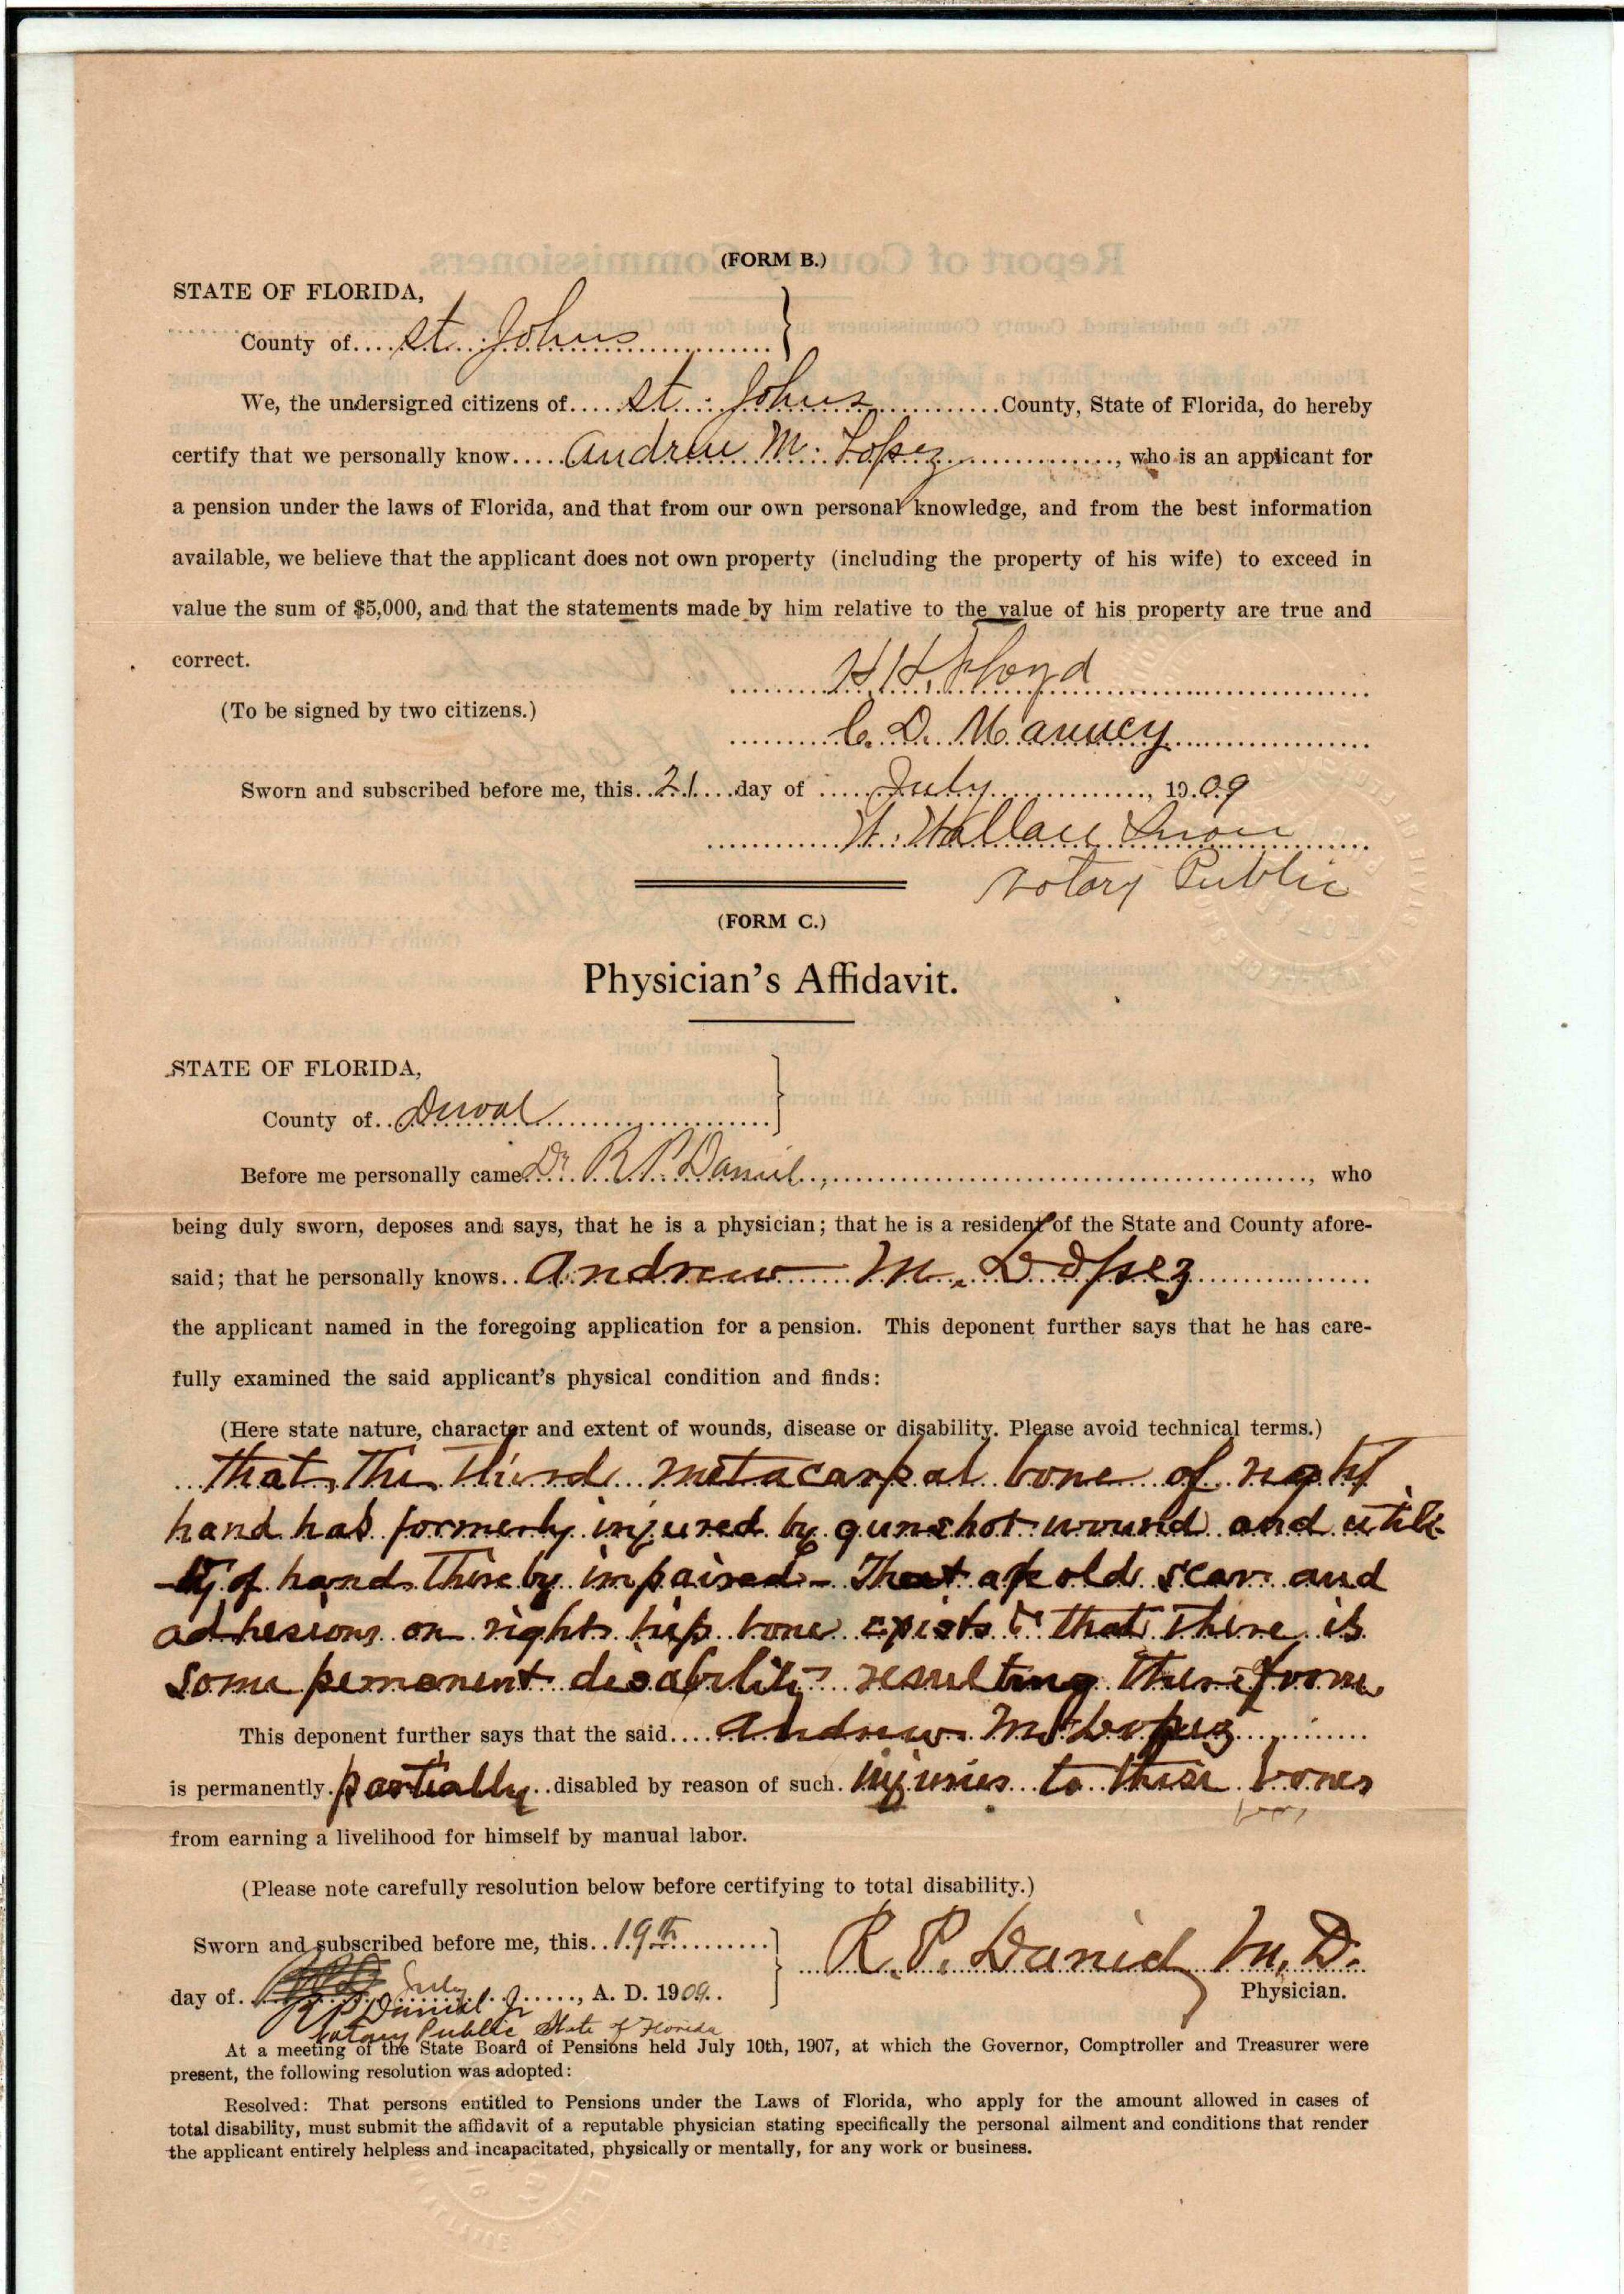 (FORM B.)
STATE OF FLORIDA,
County of St. Johns
We, the undersigned citizens of St. Johns County, State of Florida, do hereby
certify that we personally know Andrew M. Lopez, who is an applicant for
a pension under the laws of Florida, and that from our own personal knowledge, and from the best information
available, we believe that the applicant does not own property (including the property of his wife) to exceed in
value the sum of $5,000, and that the statements made by him relative to the value of his property are true and
correct.
H. H. Floyd
(To be signed by two citizens.)
C. D. Manucy
Sworn and subscribed before me, this 21 day of July, 1909
W. Wallace Snow
Notary Public
(FORM C.)
Physician's Affidavit.
STATE OF FLORIDA,
County of Duval
Before me personally came Dr. R. P. Daniel, who
being duly sworn, deposes and says, that he is a physician; that he is a resident of the State and County afore-
said; that he personally knows Andrew M. Lopez
the applicant named in the foregoing application for a pension. This deponent further says that he has care-
fully examined the said applicant's physical condition and finds:
(Here state nature, character and extent of wounds, disease or disability. Please avoid technical terms.)
that the third metacarpal bone of right
hand has formerly injured by gunshot wound and utili-
-ty of hand thereby impaired - That an old scar and
adhesions on right hip bone exists & that there is
some pemanent disability resulting therefrom
This deponent further says that the said Andrew M. Lopez
is permanently partially disabled by reason of such injuries to these bones
from earning a livelihood for himself by manual labor.
(Please note carefully resolution below before certifying to total disability.)
Sworn and subscribed before me, this 19th
R. P. Daniel M. D.
day of July, A. D. 1909.
Physician.
R P Daniel Jr
Notary Public, State of Florida
At a meeting of the State Board of Pensions held July 10th, 1907, at which the Governor, Comptroller and Treasurer were
present, the following resolution was adopted:
Resolved: That persons entitled to Pensions under the Laws of Florida, who apply for the amount allowed in cases of
total disability, must submit the affidavit of a reputable physician stating specifically the personal ailment and conditions that render
the applicant entirely helpless and incapacitated, physically or mentally, for any work or business.